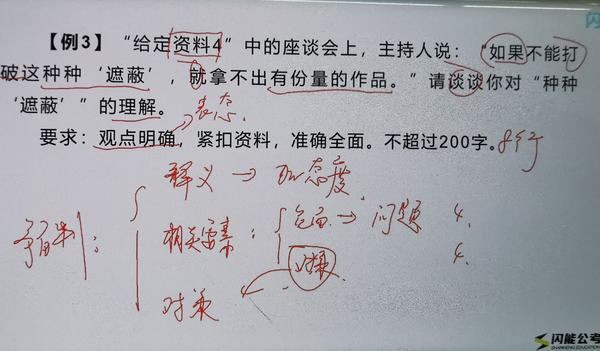 闪
【例3】“给定资料4”中的座谈会上，主持人说：“如果不能打
破这种种‘遮蔽’，就拿不出有份量的作品。”请谈谈你对“种种
‘遮蔽’”的理解。
表态
要求：观点明确，紧扣资料，准确全面。不超过200字。8行
释义→加态度
相关要素：危害→问题 4.
对策 4.
对策
闪能公考
SHANNENG EDUCATION